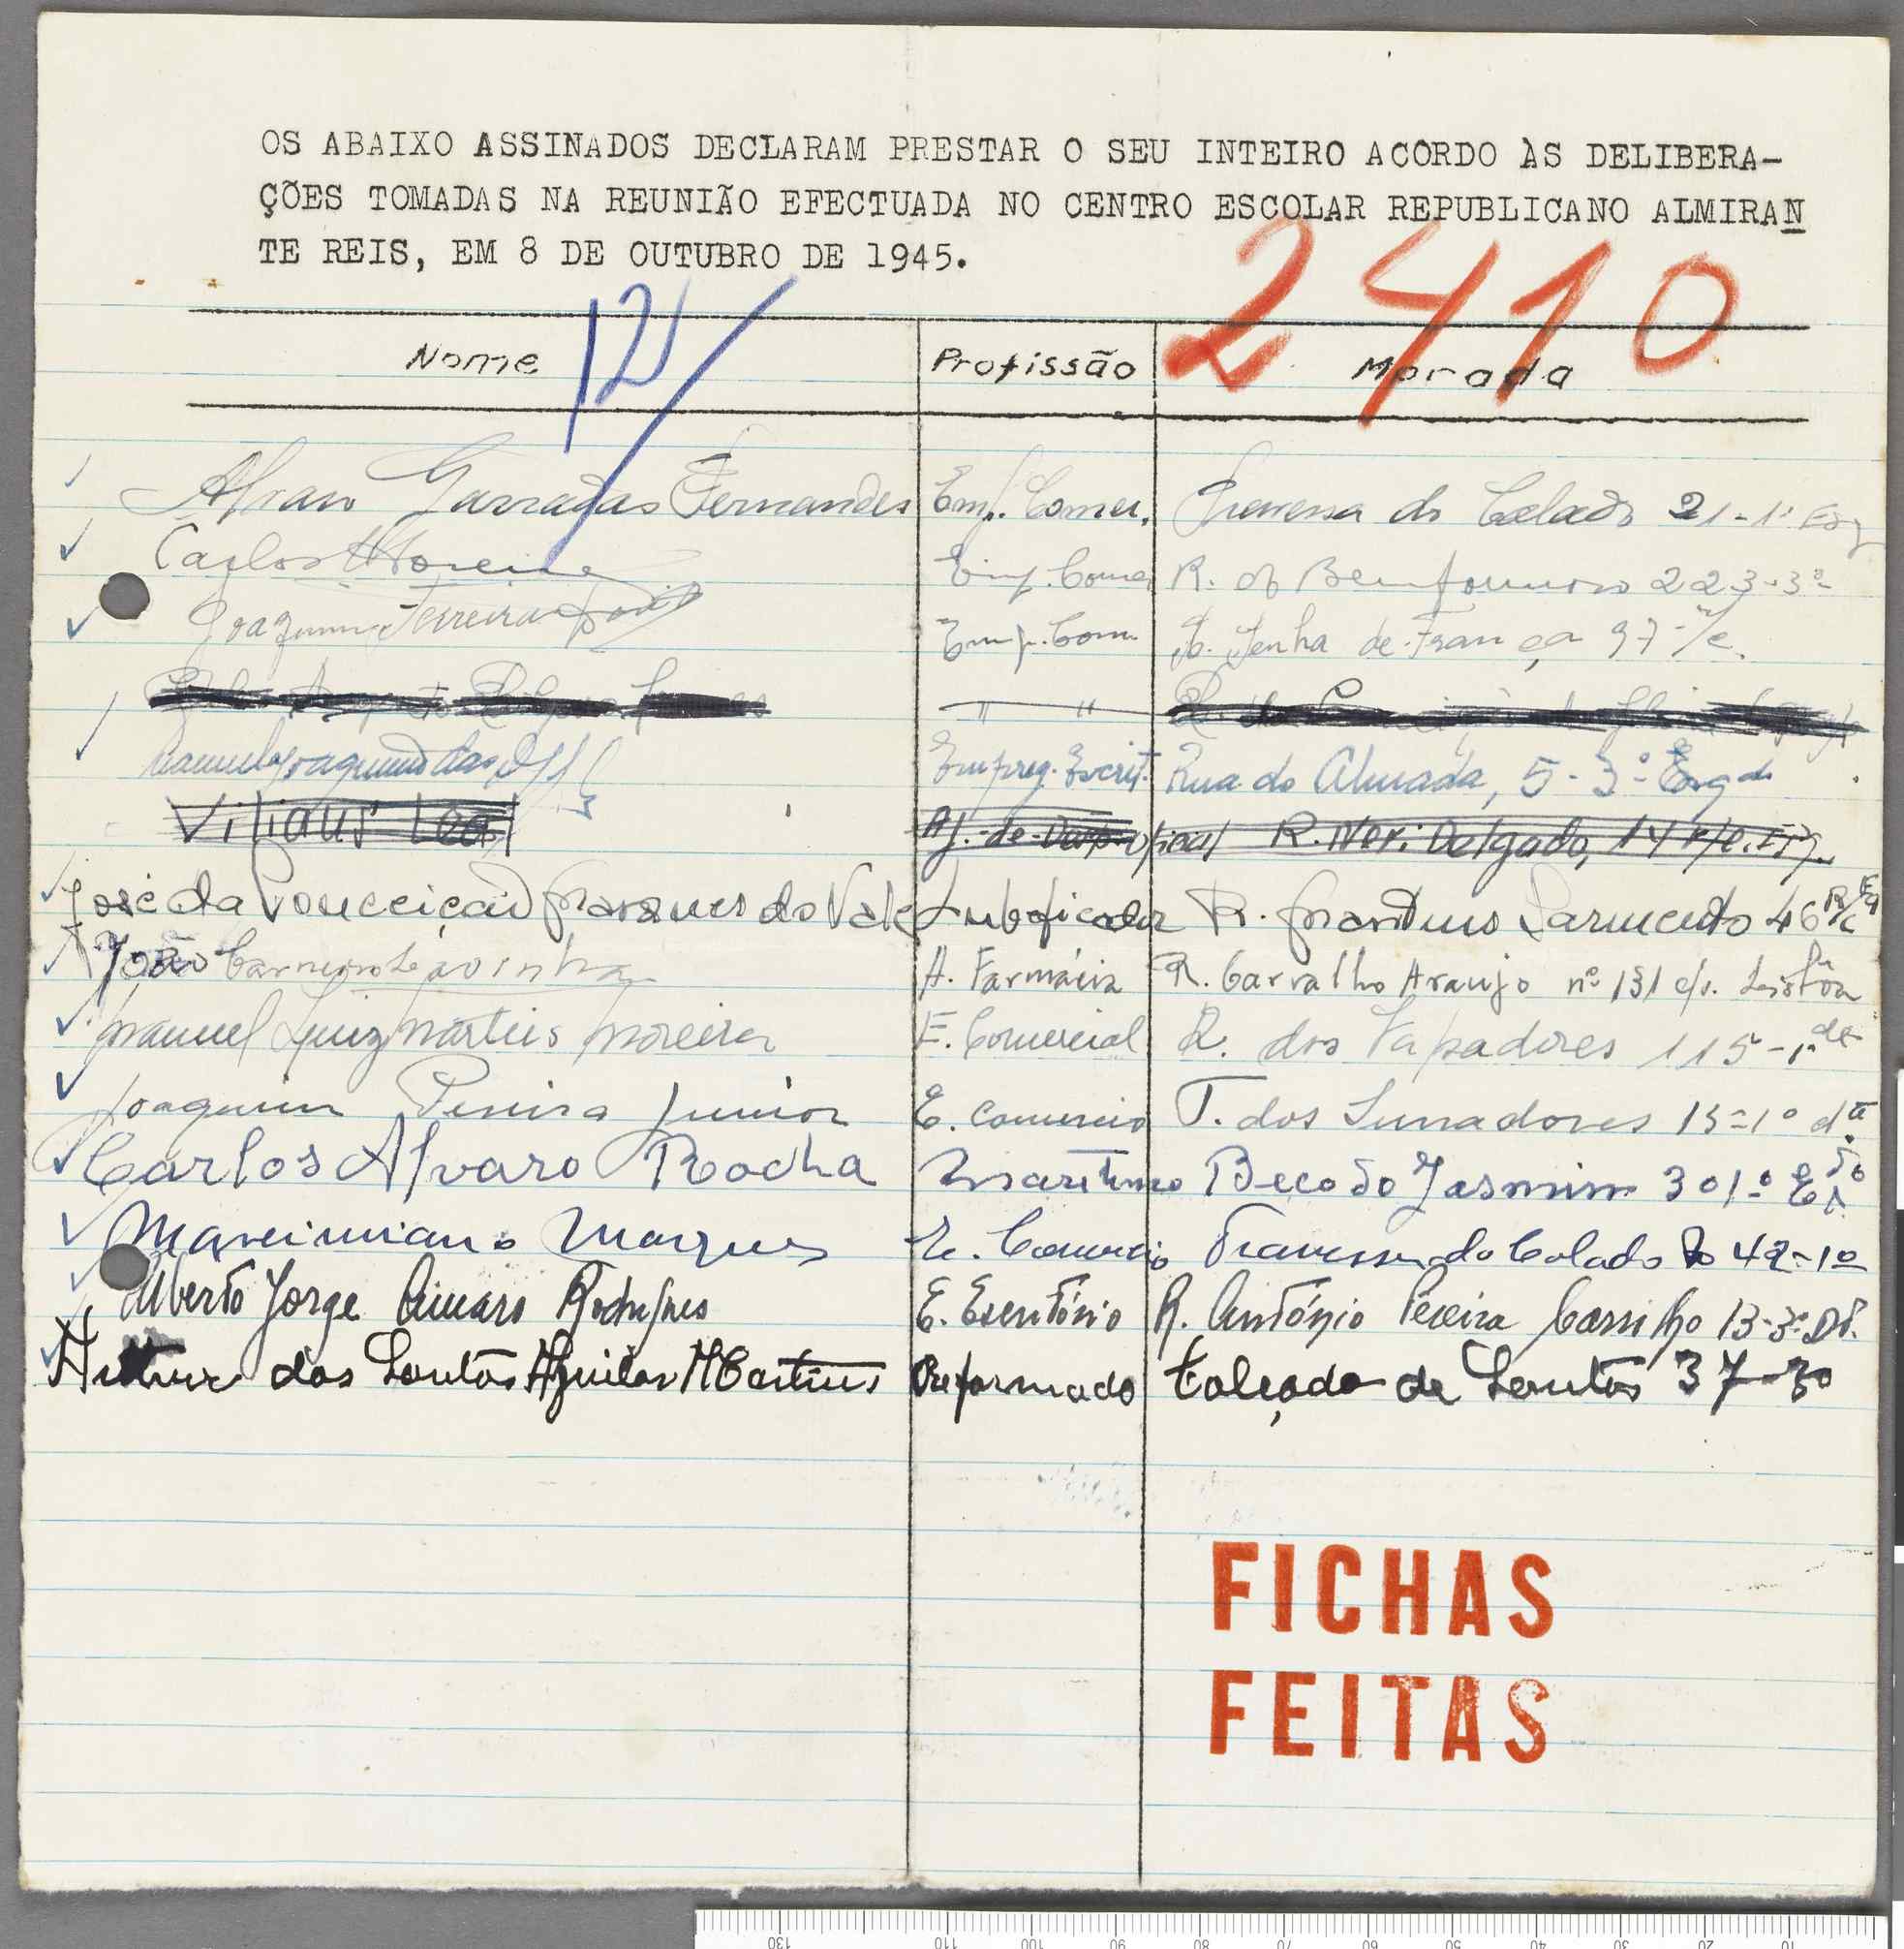 OS ABAIXO ASSINADOS DECLARAM PRESTAR O SEU INTEIRO ACORDO ÀS DELIBERA-
ÇÕES TOMADAS NA REUNIÃO EFECTUADA NO CENTRO ESCOLAR REPUBLICANO ALMIRAN
TE REIS, EM 8 DE OUTUBRO DE 1945.
12 2410
Nome Profissão Morada
Alvaro Garradas Fernandes Emp. Comer. Travessa do Calado 21-1º Esq
Carlos Moreira Emp. Comer R. do Bemformoso 223-3º
Joaquim Ferreira Emp. Com. R. Penha de França 97-r/c.
" "
Manuel Joaquim das Empreg. Escrit. Rua do Almada, 5-3º Esqdo
Leal Aj.-de-Desp. oficial R. Delgado, 14 r/c. Esq.
José da Conceição Marques do Vale Lubrificador R. Martins Sarmento 46 R/c Eq
João Carneiro A. Farmácia R. Carvalho Araujo nº 131 c/v. Lisbôa
Manuel Luiz Martins Moreira E. Comercial R. dos Sapadores 115-1º dt
Joaquim Pereira Junior E. Comercio T. dos Surradores 15-1º dtº
Carlos Alvaro Rocha Maritimo Beco do Jasmim 30 1º
Maximiano Marques E. Comercio Travessa do Calado 42-1º
Alberto Jorge Aimaro Rodrigues E. Escritório R. António Pereira Carrilho 13-3º Dt.
Artur dos Santos Aguilar Martins Reformado Calçada de Santos 37-3º
FICHAS
FEITAS